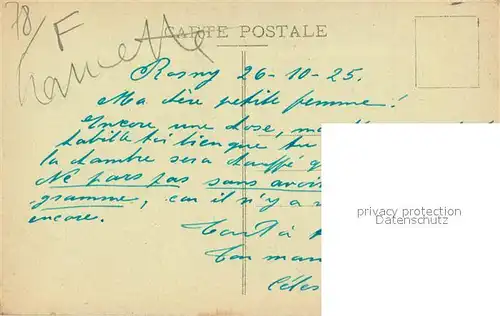 78/ F
CARTE POSTALE
Rosny 26-10-25.
Ma chère petite femme!
Encore une chose,
habille toi bien que tu
la chambre sera chauffé
Ne pars pas sans avoir
gramme, car il n'y a
encore.
privacy protection
Datenschutz
Tout à
Ton